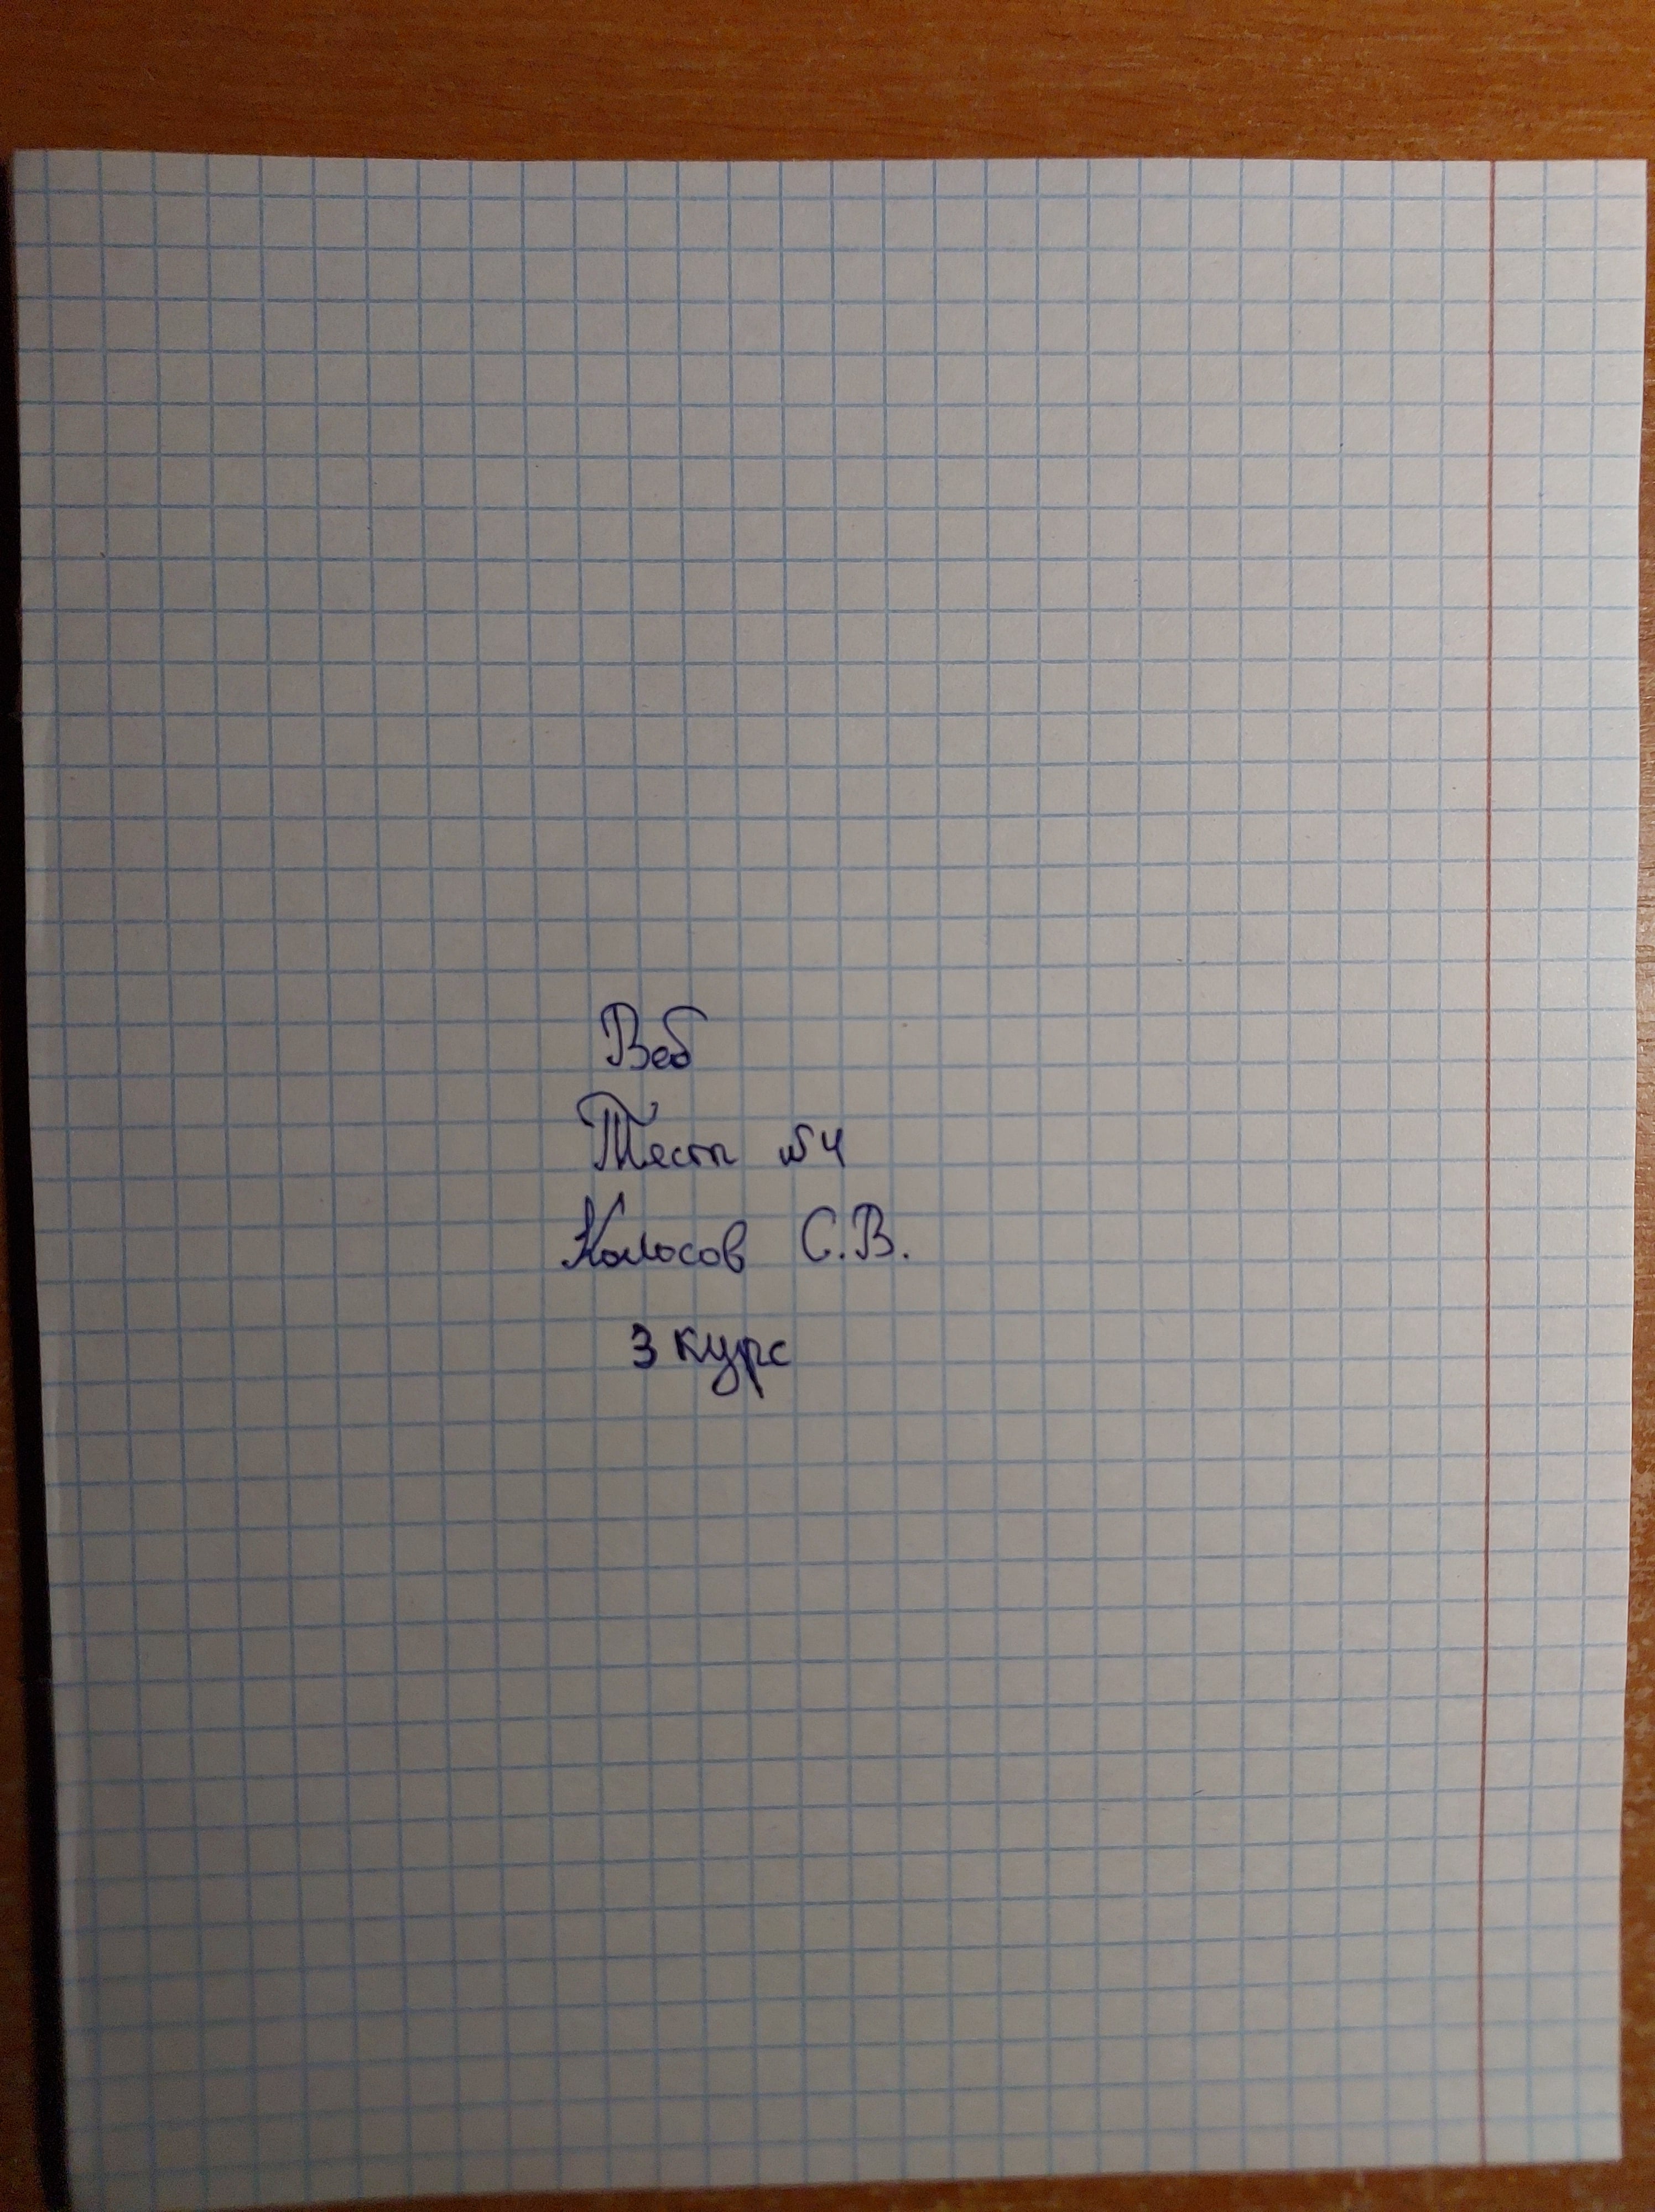 Веб
Тест №4
Колосов С.В.
3 курс